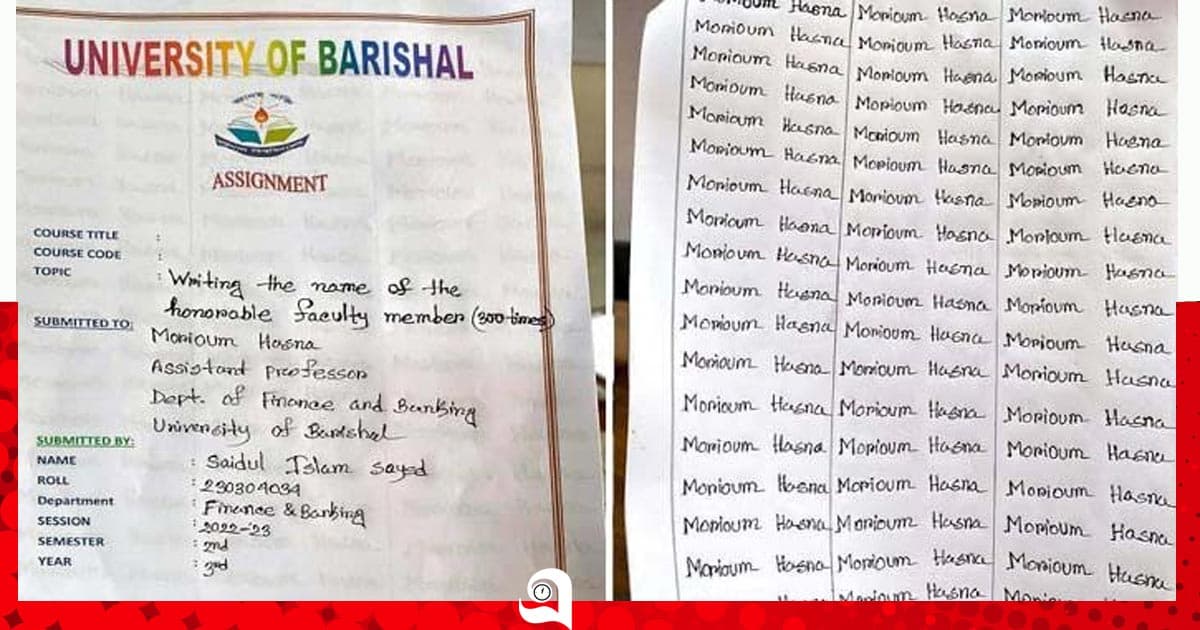 UNIVERSITY OF BARISHAL
ASSIGNMENT
COURSE TITLE :
COURSE CODE :
TOPIC : Writing the name of the
honorable faculty member (300 times)
SUBMITTED TO:
Morioum Hasna
Assistant Professor
Dept. of Finance and Banking
University of Barishal
SUBMITTED BY:
NAME : Saidul Islam Sayed
ROLL : 230304034
Department : Finance & Banking
SESSION : 2022-23
SEMESTER : 2nd
YEAR : 3rd
Hasna Morioum Hasna Morioum Hasna
Morioum Hasna Morioum Hasna Morioum Hasna
Morioum Hasna Morioum Hasna Morioum Hasna
Morioum Hasna Morioum Hasna Morioum Hasna
Morioum Hasna Morioum Hasna Morioum Hasna
Morioum Hasna Morioum Hasna Morioum Hasna
Morioum Hasna Morioum Hasna Morioum Hasna
Morioum Hasna Morioum Hasna Morioum Hasna
Morioum Hasna Morioum Hasna Morioum Hasna
Morioum Hasna Morioum Hasna Morioum Hasna
Morioum Hasna Morioum Hasna Morioum Hasna
Morioum Hasna Morioum Hasna Morioum Hasna
Morioum Hasna Morioum Hasna Morioum Hasna
Morioum Hasna Morioum Hasna Morioum Hasna
Morioum Hasna Morioum Hasna Morioum Hasna
Morioum Hasna Morioum Hasna Morioum Hasna
Morioum Hasna Morioum Hasna Morioum Hasna
Morioum Hasna